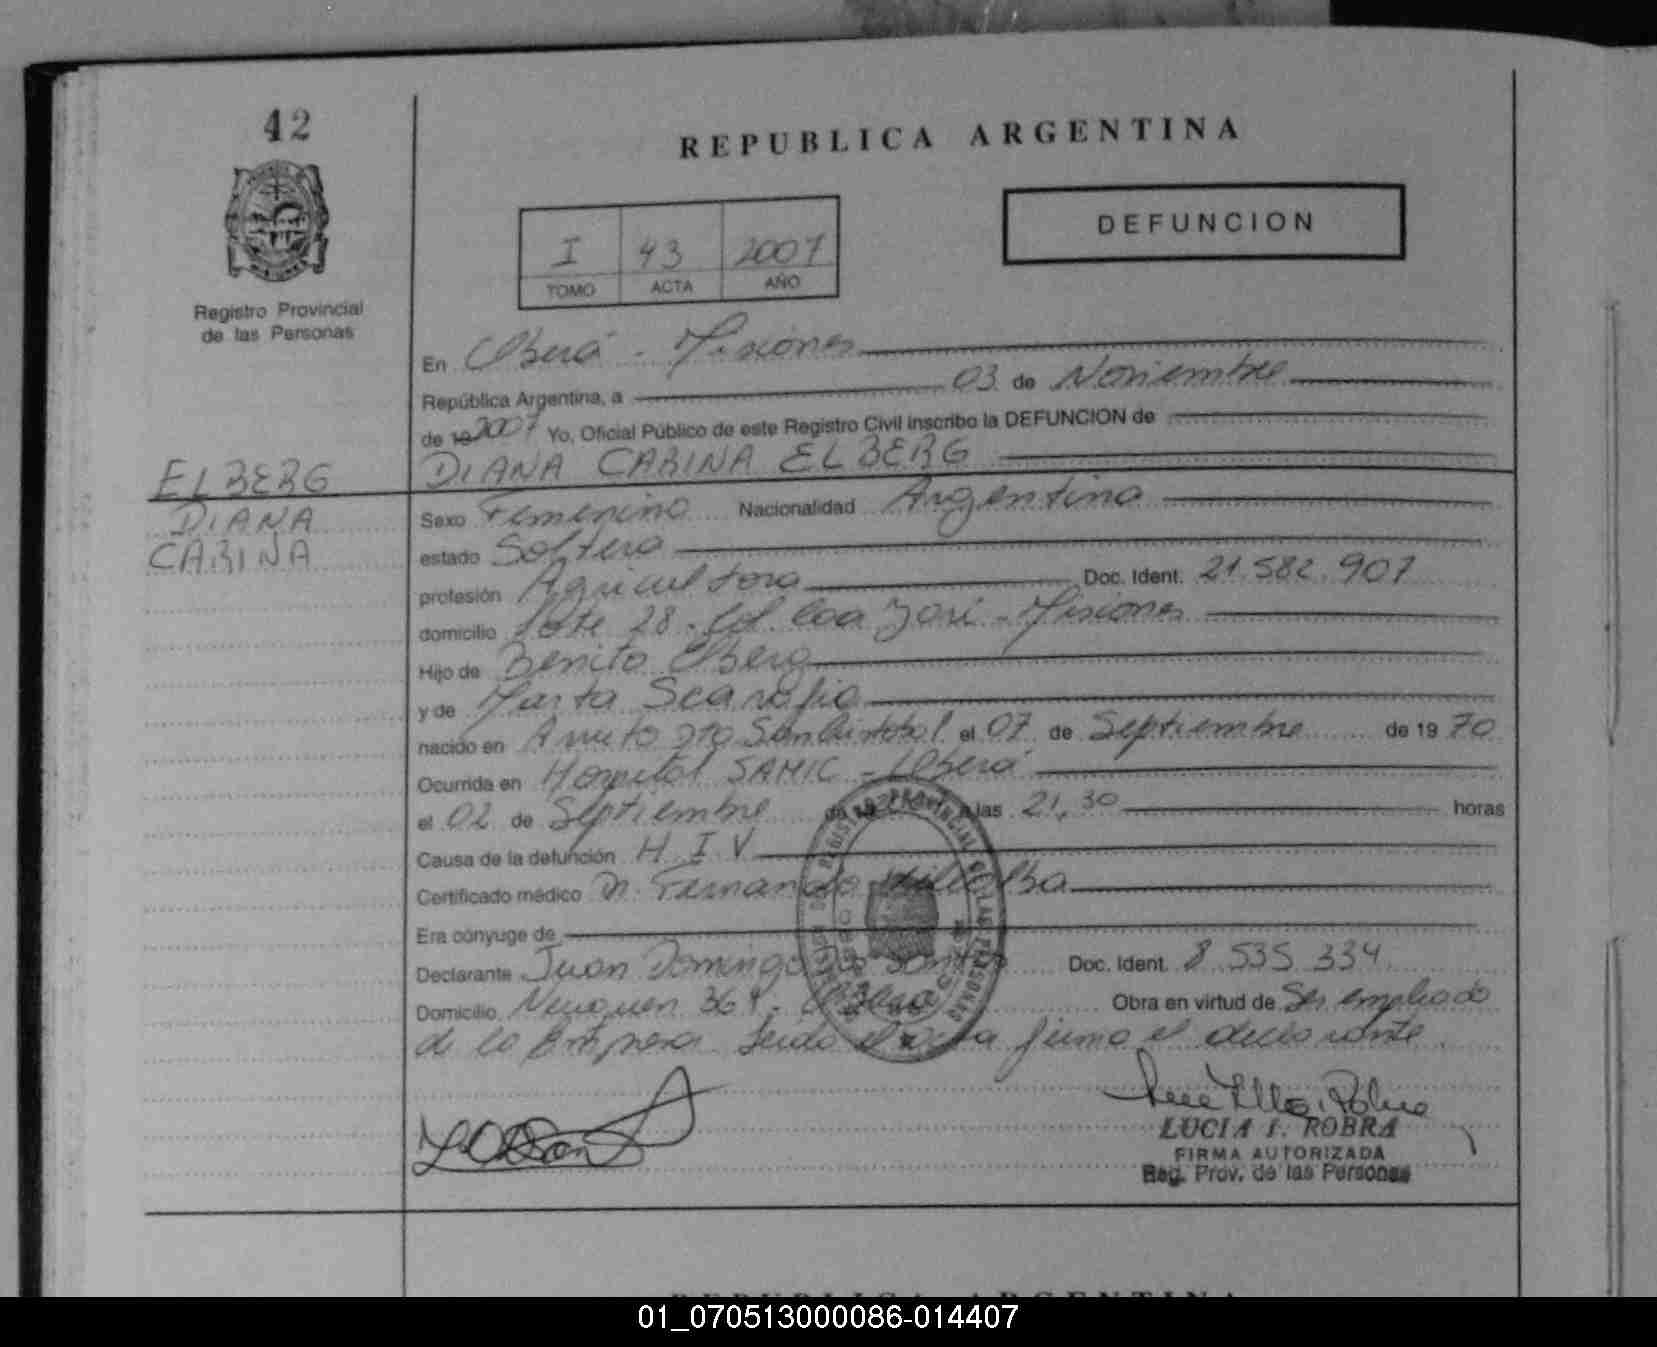 42
REPUBLICA ARGENTINA
DEFUNCION
I 43 2007
TOMO ACTA AÑO
Registro Provincial
de las Personas
En Oberá - Misiones
República Argentina, a 03 de Noviembre
de 19 2007 Yo, Oficial Público de este Registro Civil inscribo la DEFUNCION de
DIANA CARINA ELBERG
ELBERG
DIANA
CARINA
Sexo Femenino Nacionalidad Argentina
estado Soltera
profesión Agricultora Doc. Ident. 21.582.907
domicilio Lote 28 - Misiones
Hijo de Benito Elberg
y de Marta
nacido en el 07 de Septiembre de 1970
Ocurrida en Hospital SAMIC - Oberá
el 02 de Septiembre a las 21,30 horas
Causa de la defunción H I V
Certificado médico Dr. Fernando
Era cónyuge de
Declarante Juan Domingo Dos Santos Doc. Ident. 8 535 334
Domicilio Neuquen - Oberá Obra en virtud de Ser empleado
de la Empresa Leida el acta firma el declarante
LUCIA I. ROBRA
FIRMA AUTORIZADA
Reg. Prov. de las Personas
REPUBLICA ARGENTINA
01_070513000086-014407